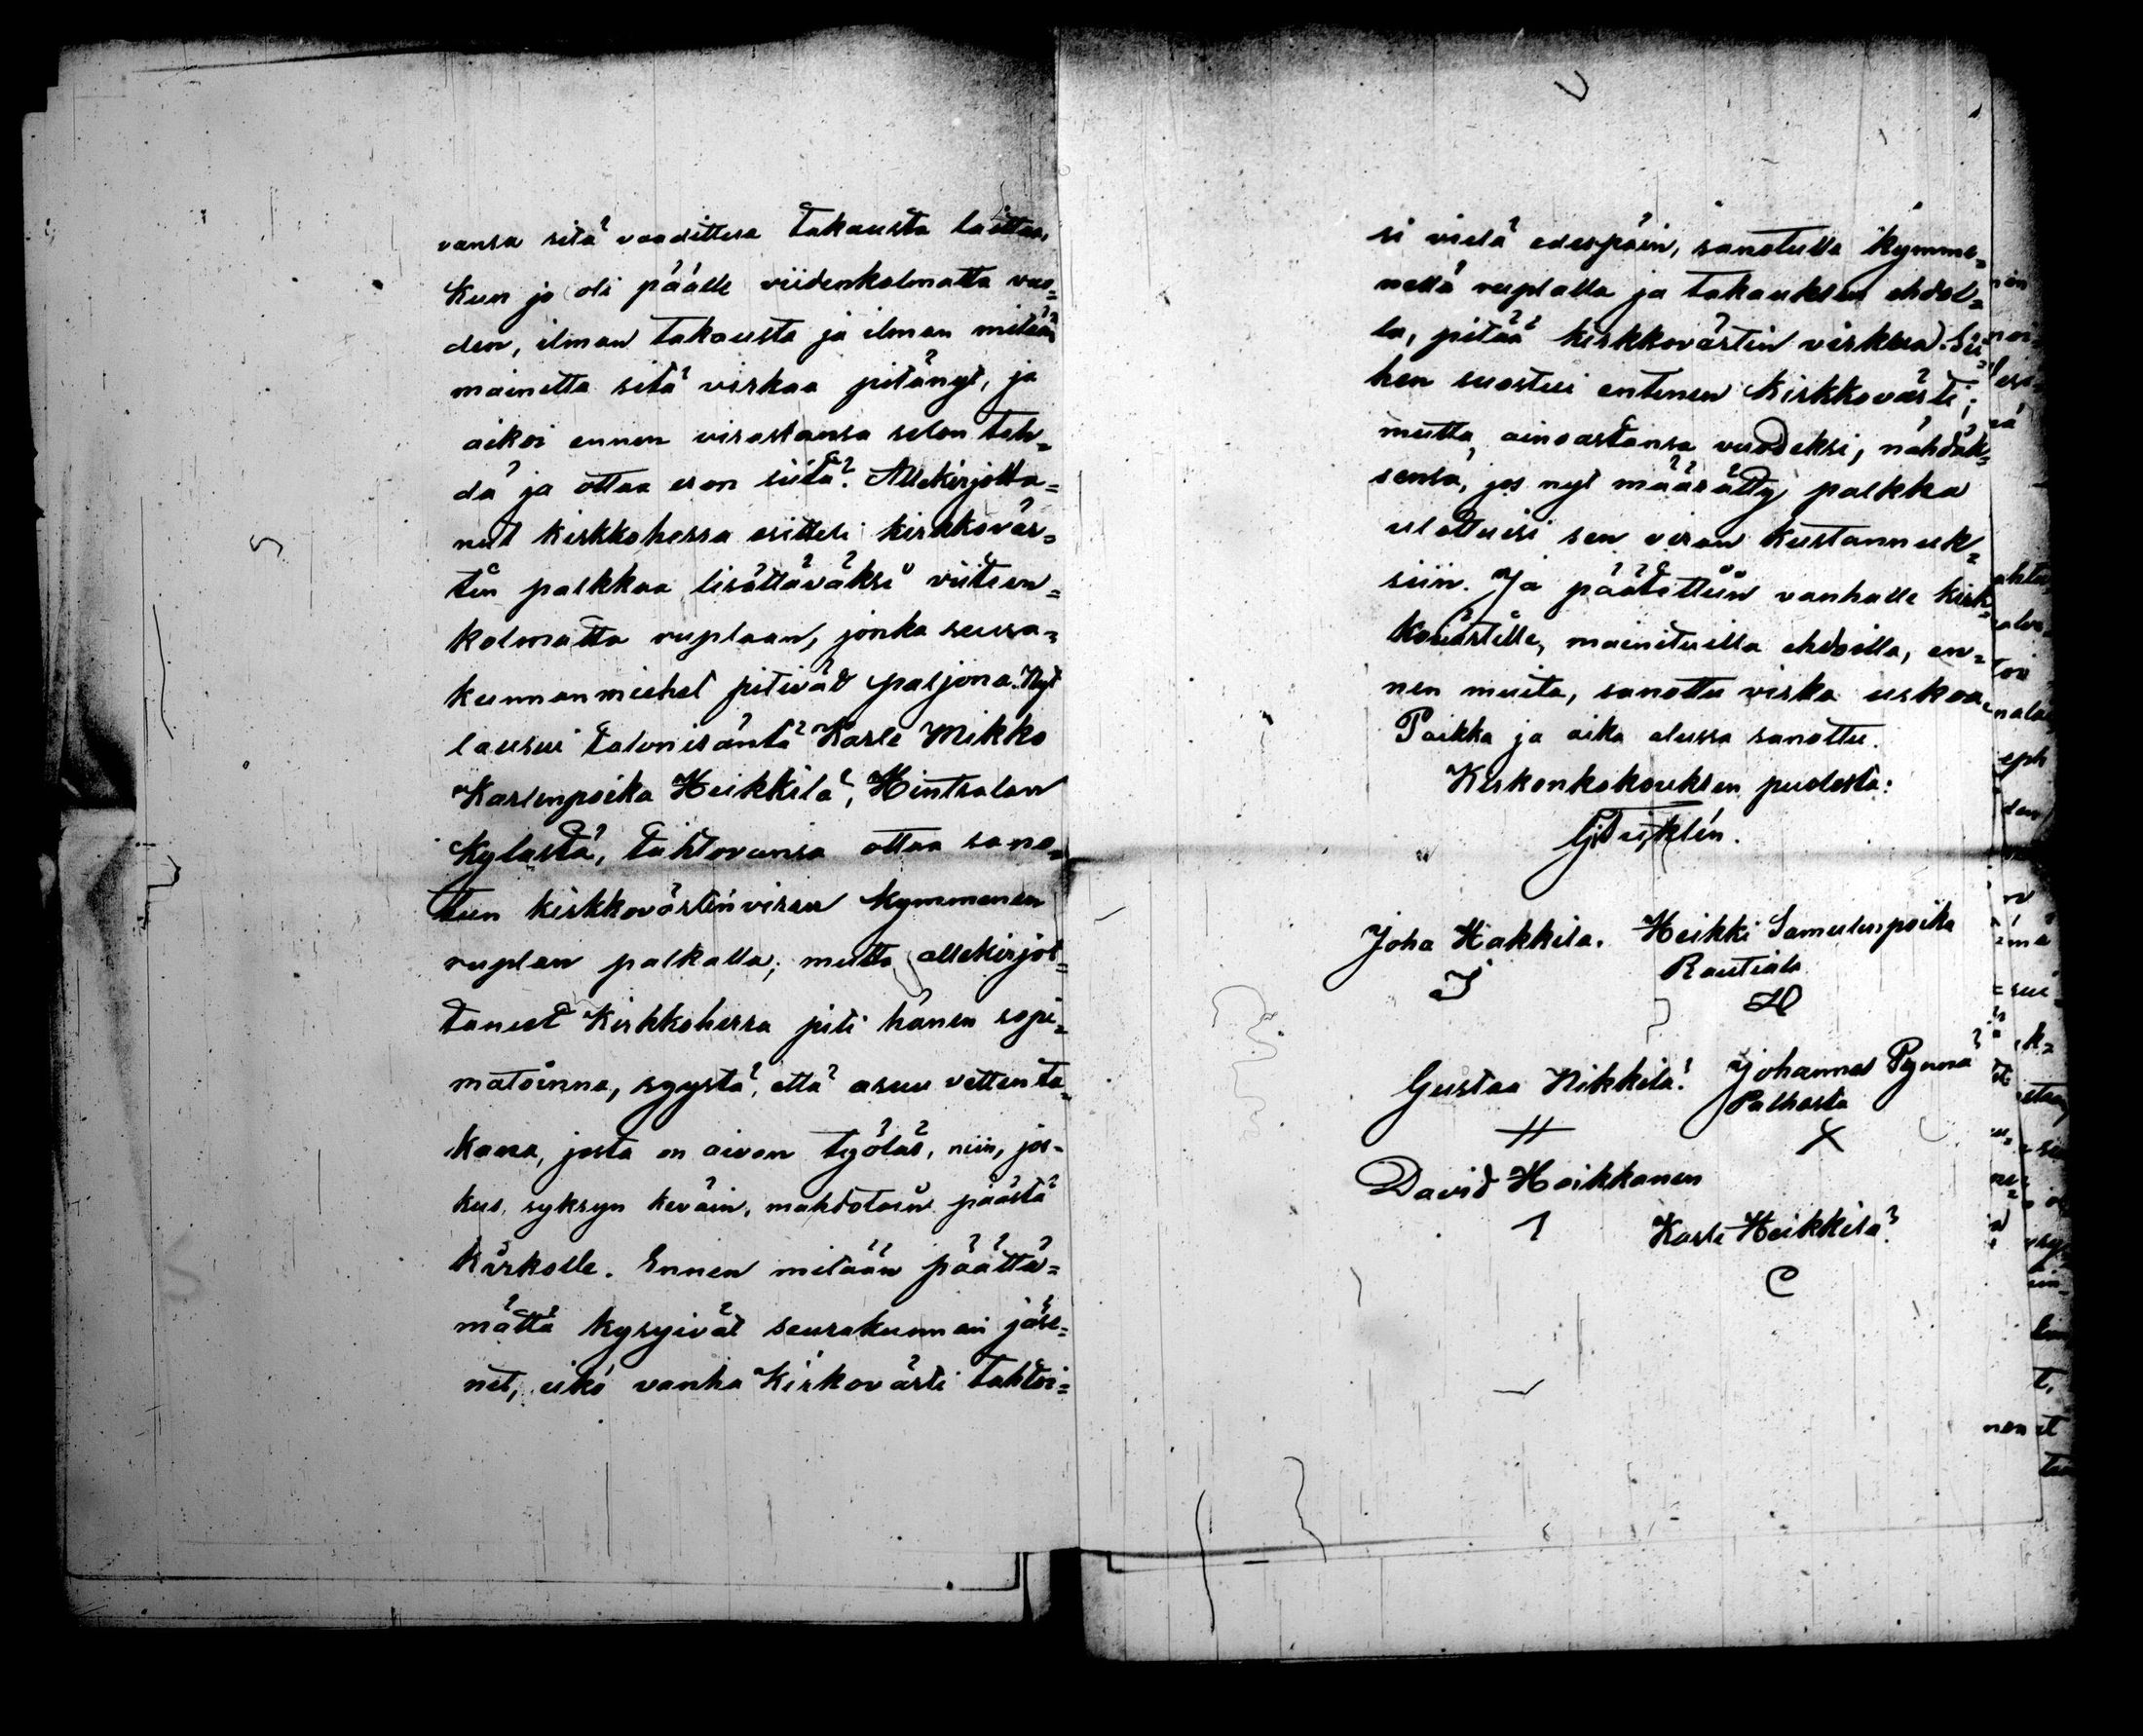 vansa sitä vaadittua takausta laittaa,
kun jo oli päälle viidenkolmatta vuo=
den, ilman takausta ja ilman mitään
mainetta sitä virkaa pitänyt, ja
aikoi ennen virastansa selon teh=
dä ja ottaa eron siitä. Allekirjotta=
nut kirkkoherra esitteli kirkkovär=
tin palkkaa lisättäväksi viiteen=
kolmatta ruplaan, jonka seura=
kunnan miehet pitivät paljona. Nyt
lausui talonisäntä Karle Mikko
Karlenpoika Heikkilä, Hintsalan
kylästä, tahtovansa ottaa sano=
tun kirkkovärtinviran kymmenen
ruplan palkalla; mutta allekirjot=
tanut Kirkkoherra piti hänen sopi=
matoinna, syystä, että asuu vetten ta=
kana, josta on aivan työläs, niin, jos=
kus, syksyn keväin, mahdotoin päästä
kirkolle. Ennen mitään päättä=
mättä kysyivät seurakunnan jäse=
net, eikö vanha Kirkovärti tahtoi=
si vielä edespäin, sanotulla kymme=
nellä ruplalla ja takauksen ehdol=
la, pitää kirkkovärtin virkaa. Sii=
hen suostui entinen Kirkkovärti;
mutta ainoastansa vuodeksi, nähdäk=
sensä, jos nyt määrätty palkka
ulottuisi sen viran kustannuk=
siin. Ja päätettiin vanhalle kirk=
kovärtille, mainituilla ehdoilla, en=
nen muita, sanottu virka uskoa.
Paikka ja aika alussa sanottu.
Kirkonkokouksen puolesta:
Joha Hakkila. Heikki Samulinpoika
Rautiala
Gustaa Nikkilä. Johannes Pynnä
Palhosta
David Hoikkanen
Karle Heikkilä.